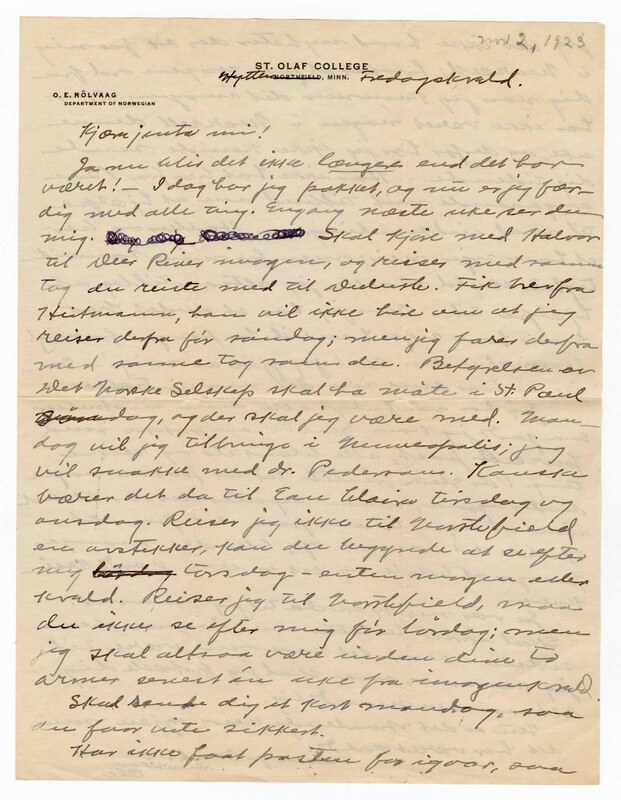 nov 2, 1923
ST. OLAF COLLEGE
Hytten NORTHFIELD, MINN. Fredagskvæld.
O. E. RÖLVAAG
DEPARTMENT OF NORWEGIAN
Kjæra jenta mi!
Ja nu blir det ikke længer end det har
været! — Idag har jeg pakket, og nu er jeg fær-
dig med alle ting. Engang næste uke ser du
mig. Skal kjöre med Halvor
til Deer River imorgen, og reiser med samme
tog du reiste med til Duluth. Fik brev fra
Heitmann, han vil ikke höre om at jeg
reiser derfra för söndag; men jeg farer derfra
med samme tog som du. Bestyrelsen av
Det Norske Selskap skal ha möte i St. Paul
dag, og der skal jeg være med. Man-
dag vil jeg tilbringe i Minneapolis; jeg
vil snakke med dr. Pedersen. Kanske
bærer det da til Eau Claire tirsdag og
onsdag. Reiser jeg ikke til Northfield
en avstikker, kan du begynde at se efter
mig lördag torsdag – enten morgen eller
kvæld. Reiser jeg til Northfield, maa
du ikke se efter mig för lördag; men
jeg skal altsaa være inden dine to
armer senest én uke fra imorgenkvæld.
Skal sende dig et kort mandag, saa
du faar vite sikkert.
Har ikke faat posten for igaar, saa